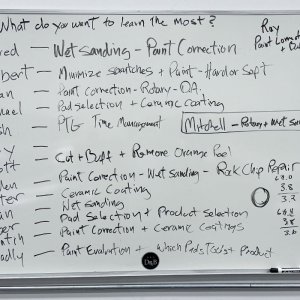 What do you want to learn the most?
Roy
Paint Correction
red — Wet sanding - Paint Correction
bert — Minimize scratches + Paint - Hard or Soft
an — Paint correction - Rotary - DA
ael — Pad selection + Ceramic Coating
sh — PTG Time Management
Mitchell - Rotary + Wet Sand
y — Cut + Buff + Remove Orange Peel
ott — Paint Correction - Wet Sanding - Rock Chip Repair
en — Ceramic Coating
ter — Wet Sanding
an — Pad Selection + Product Selection
ber — Paint Correction + Ceramic Coatings
adly — Paint Evaluation + which Pads Tools + Product
3.8